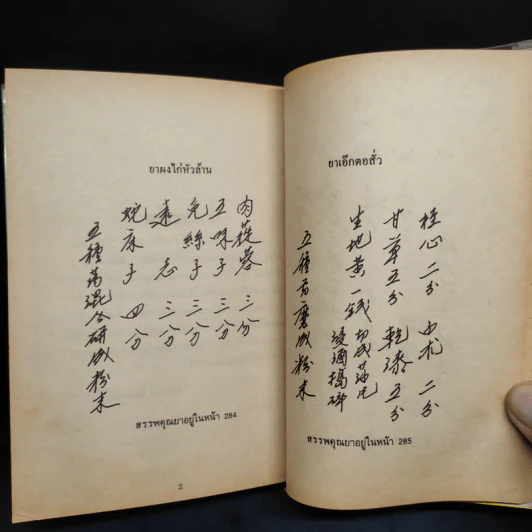 ยาผงไก่หัวล้าน
肉蓯蓉 三分
五味子 三分
兔絲子 三分
遠志 三分
蛇床子 四分
五種葯混合研成粉末
สรรพคุณยาอยู่ในหน้า 284
2
ยาเอ๊กตอสั่ว
桂心 二分 白朮 二分
甘草五分 乾漆 五分
生地黃一錢 切成薄片
浸酒搗碎
五種葯磨成粉末
สรรพคุณยาอยู่ในหน้า 285